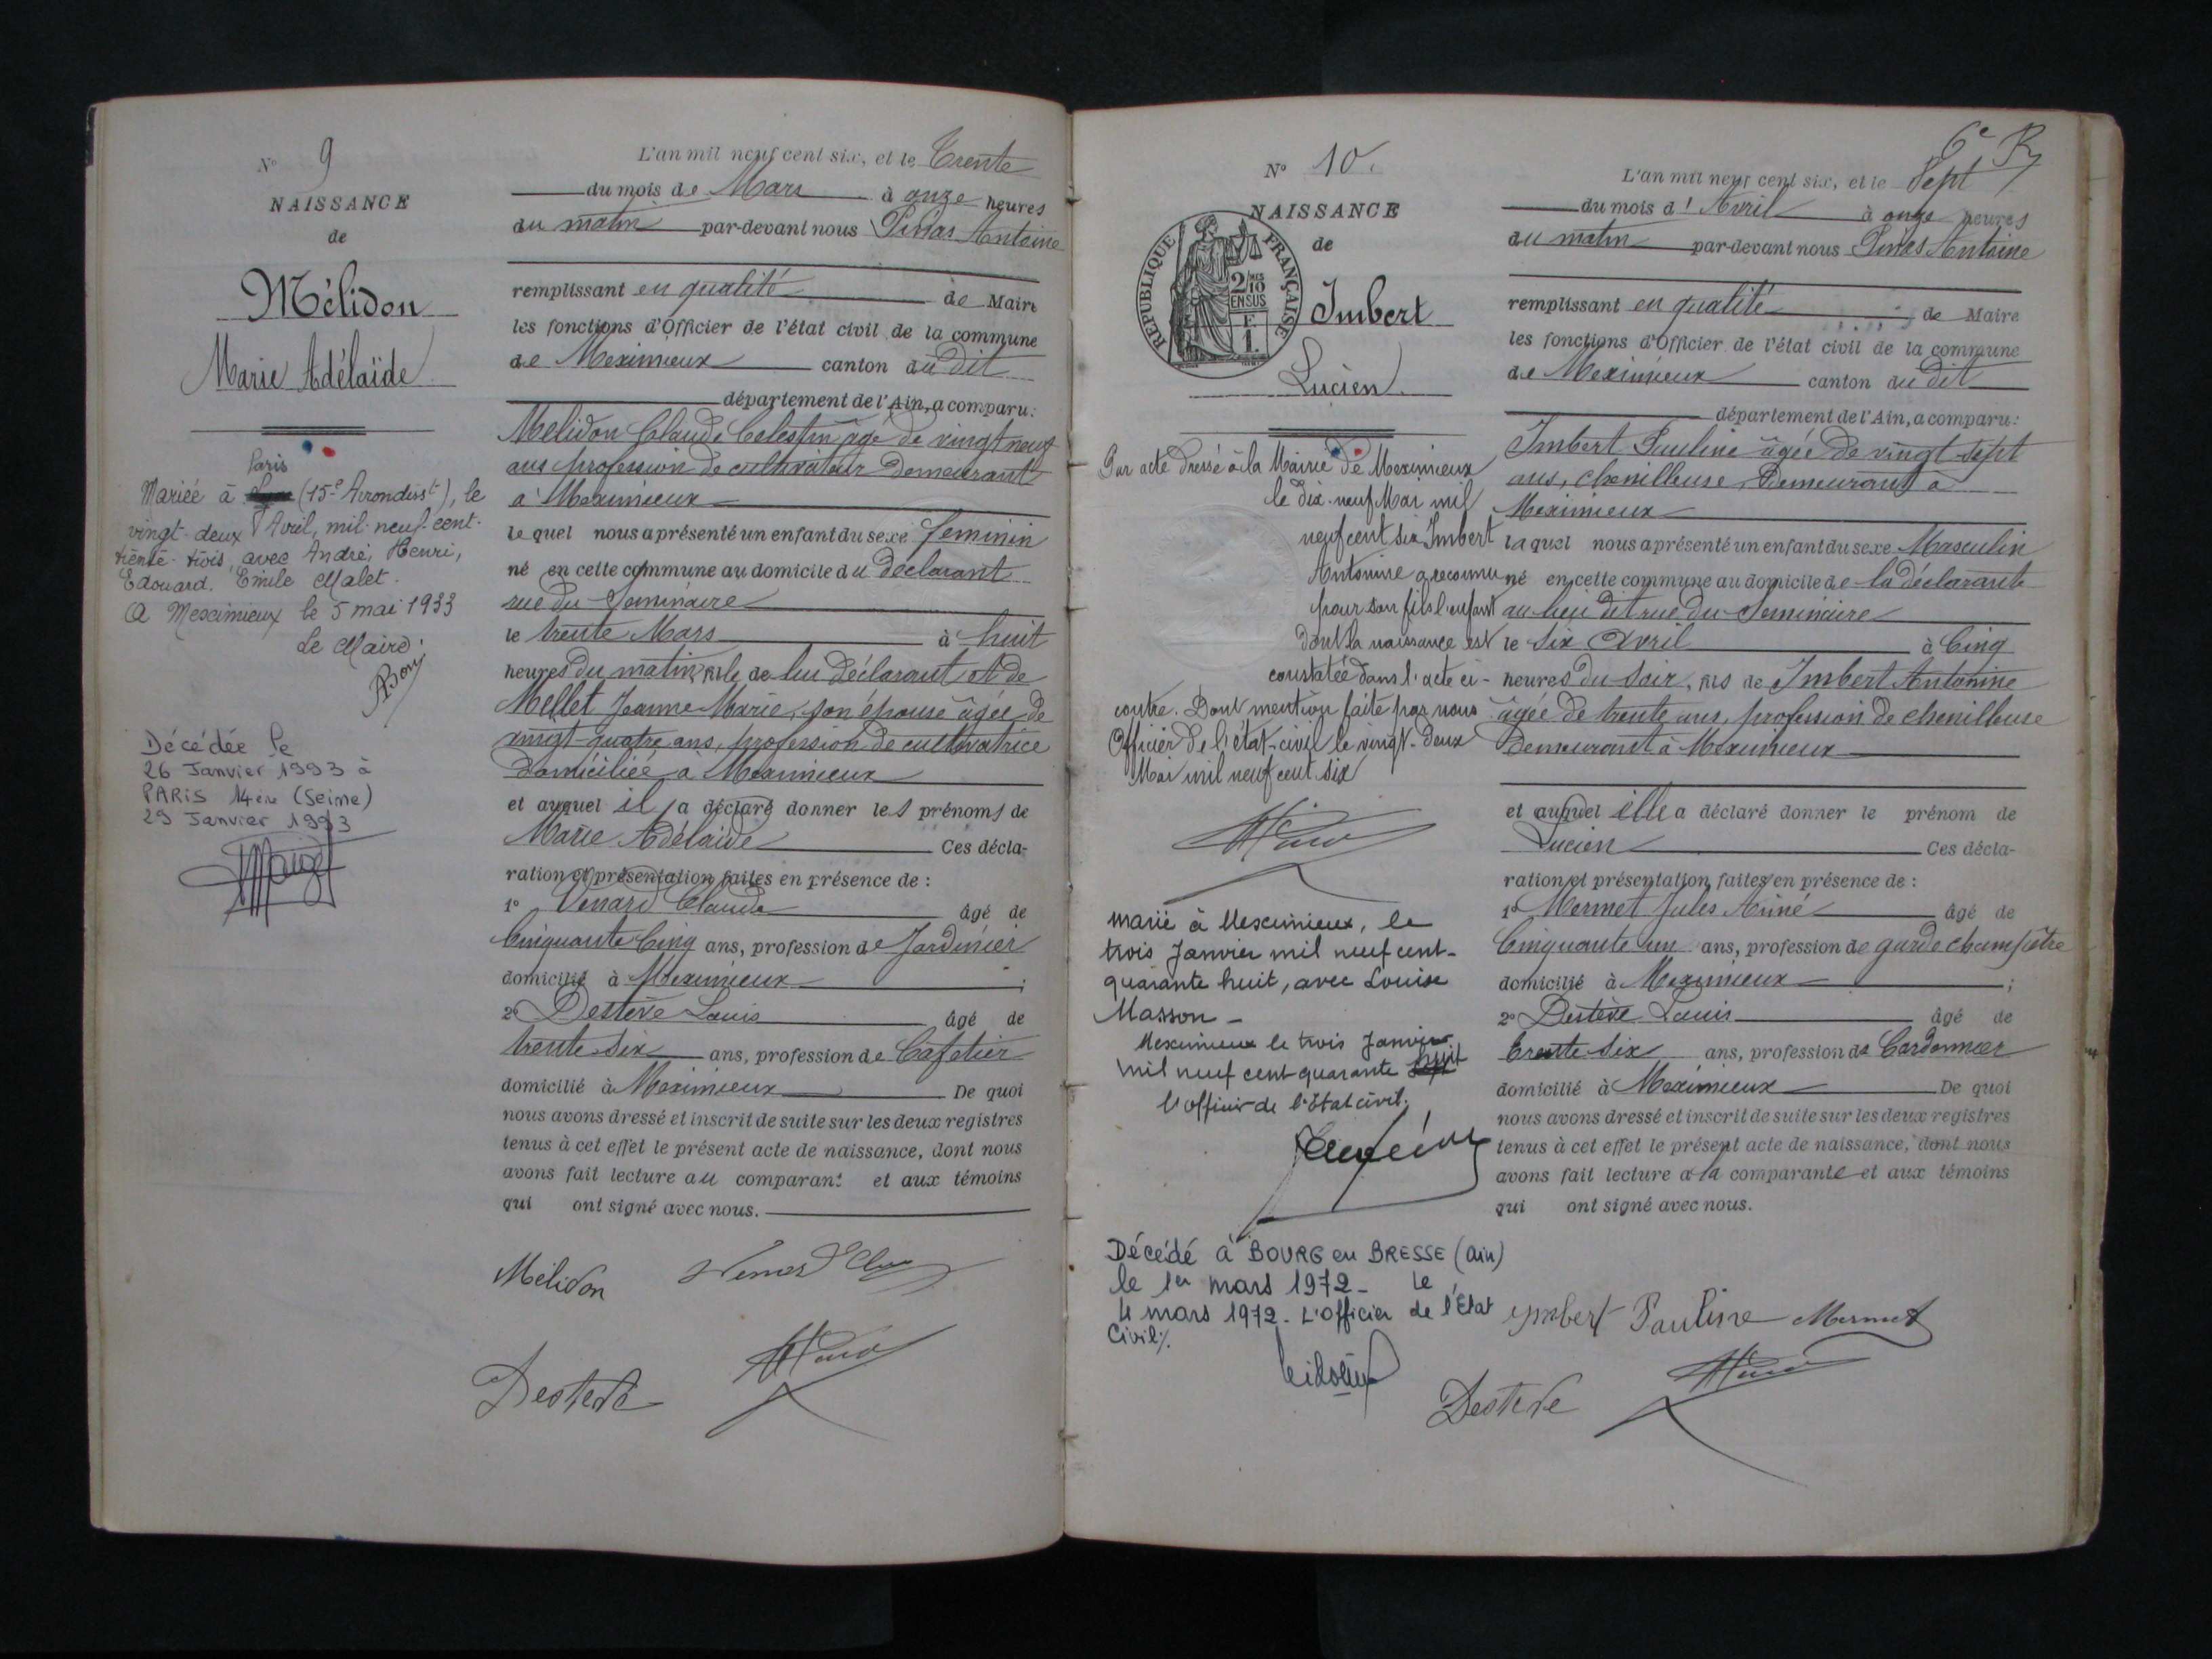 N° 9
NAISSANCE
de
Mélidon
Marie Adélaïde
Paris
Mariée à (15e Arrondisst), le
vingt-deux Avril, mil-neuf-cent-
trente-trois, avec André, Henri,
Edouard, Emile Malet.
A Meximieux le 5 mai 1933
Le Maire:
Décédée le
26 Janvier 1993 à
PARIS 14ème (Seine)
29 Janvier 1993
L'an mil neuf cent six, et le Trente
du mois de Mars à onze heures
du matin par-devant nous Antoine
remplissant en qualité de Maire
les fonctions d'Officier de l'état civil de la commune
de Meximieux canton du dit
département de l'Ain, a comparu:
Melidon Claude Celestin âgé de vingt neuf
ans profession de cultivateur demeurant
à Meximieux
le quel nous a présenté un enfant du sexe feminin
né en cette commune au domicile du déclarant
rue du Seminaire
le trente Mars à huit
heures du matin, fille de lui déclarant et de
Mellet Jeanne Marie, son épouse âgée de
vingt-quatre ans, profession de cultivatrice
domiciliée à Meximieux
et auquel il a déclaré donner les prénoms de
Marie Adélaïde Ces décla-
ration et présentation faites en présence de :
1° Venard Claude âgé de
Cinquante Cinq ans, profession de Jardinier
domicilié à Meximieux ;
2° Destève Louis âgé de
trente six ans, profession de Cafetier
domicilié à Meximieux De quoi
nous avons dressé et inscrit de suite sur les deux registres
tenus à cet effet le présent acte de naissance, dont nous
avons fait lecture au comparant et aux témoins
qui ont signé avec nous.
Mélidon
Desteve
6e R
N° 10.
NAISSANCE
de
REPUBLIQUE FRANÇAISE
2/10
EN SUS
F.
1.
Imbert
Lucien
Par acte dressé à la Mairie de Meximieux
le dix-neuf Mai mil
neuf cent six Imbert
Antonine a reconnu
pour son fils l'enfant
dont la naissance est
constatée dans l'acte ci-
contre. Dont mention faite par nous
Officier de l'état-civil le vingt-deux
Mai mil neuf cent six
marié à Meximieux, le
trois Janvier mil neuf cent-
quarante huit, avec Louise
Masson -
Meximieux le trois Janvier
mil neuf cent quarante huit
l'officier de l'Etat civil.
Décédé à BOURG en BRESSE (Ain)
le 1er mars 1972 - Le
4 mars 1972. L'officier de l'Etat
Civil/.
L'an mil neuf cent six, et le Sept
du mois d'Avril à onze heures
du matin par-devant nous Antoine
remplissant en qualité de Maire
les fonctions d'Officier de l'état civil de la commune
de Meximieux canton du dit
département de l'Ain, a comparu:
Imbert Pauline âgée de vingt-sept
ans, chenilleuse, Demeurant à
Meximieux
laquel nous a présenté un enfant du sexe Masculin
né en cette commune au domicile de la déclarante
au lieu dit rue du Seminaire
le six Avril à Cinq
heures du soir, fils de Imbert Antonine
âgée de trente ans, profession de chenilleuse
demeurant à Meximieux
et auquel elle a déclaré donner le prénom de
Lucien Ces décla-
ration et présentation faites en présence de :
1° Mermet Jules Aimé âgé de
Cinquante un ans, profession de garde champêtre
domicilié à Meximieux ;
2° Destève Louis âgé de
trente six ans, profession de Cordonnier
domicilié à Meximieux De quoi
nous avons dressé et inscrit de suite sur les deux registres
tenus à cet effet le présent acte de naissance, dont nous
avons fait lecture à la comparante et aux témoins
qui ont signé avec nous.
ymbert Pauline Mermet
Desteve